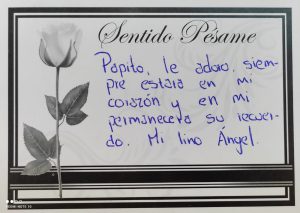 Sentido Pésame
Papito, le adoro, siem-
pre estara en mi
corazón y en mi
permanecera su recuer-
do. Mi lino Ángel.